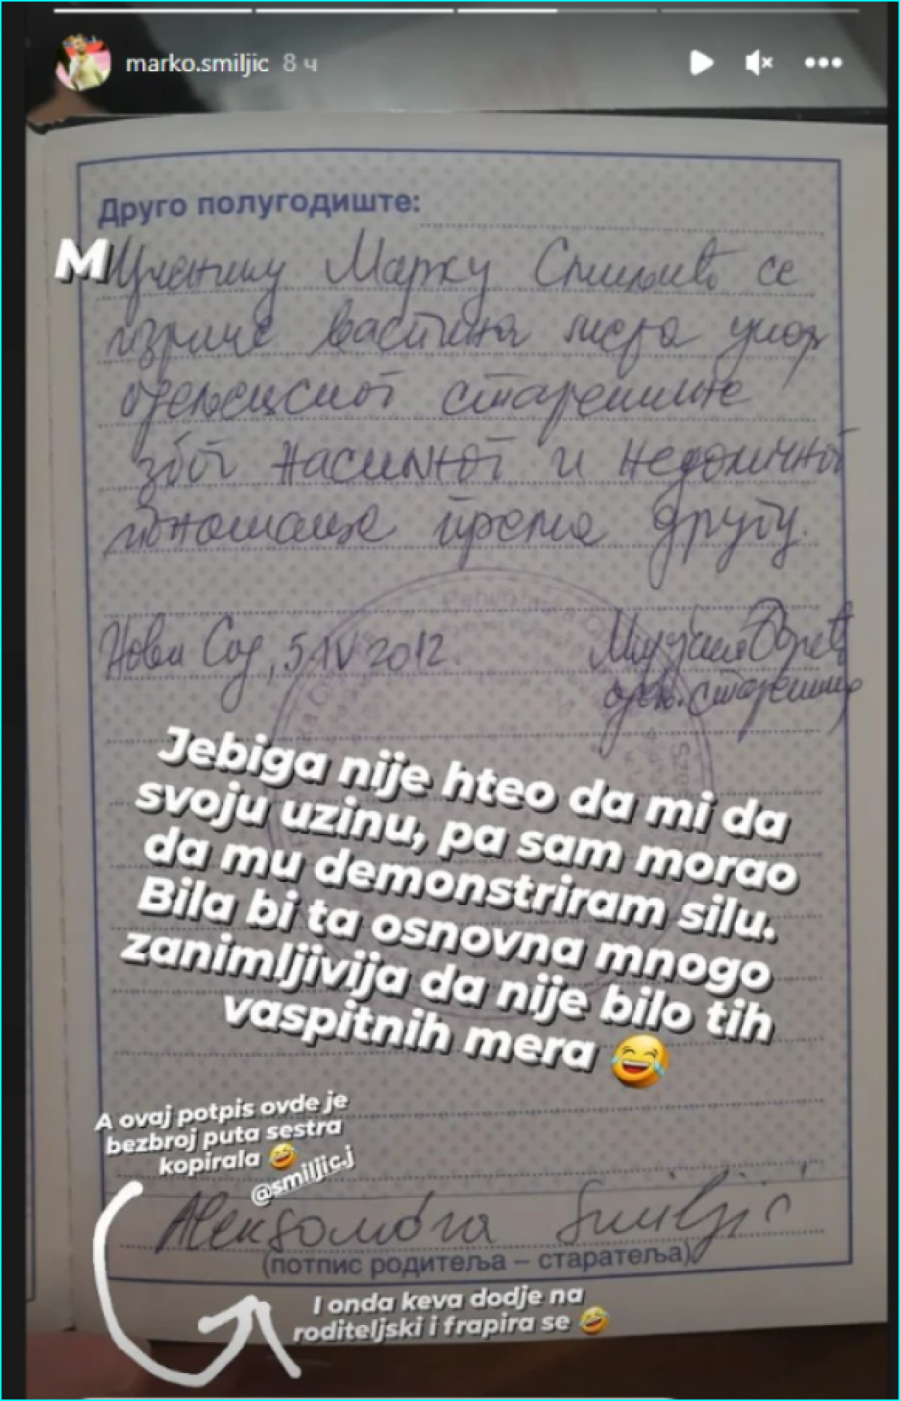 marko.smiljic 8 ч
Друго полугодиште:
М
Ученику Марку Смиљићу се
изриче васпитна мера укор
одељенског старешине
због насилног и недоличног
понашања према другу.
Нови Сад, 5.IV 2012.
одељ. старешина
Jebiga nije hteo da mi da
svoju uzinu, pa sam morao
da mu demonstriram silu.
Bila bi ta osnovna mnogo
zanimljivija da nije bilo tih
vaspitnih mera 😂
A ovaj potpis ovde je
bezbroj puta sestra
kopirala 🤣
@smiljic.j
Aleksandra Smiljić
(потпис родитеља – старатеља)
I onda keva dodje na
roditeljski i frapira se 🤣